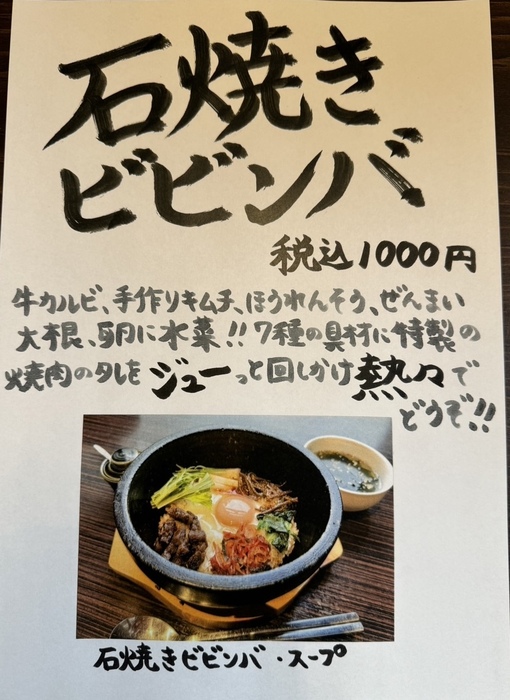 石焼き
ビビンバ
税込1000円
牛カルビ、手作りキムチ、ほうれんそう、ぜんまい
大根、卵に水菜!!7種の具材に特製の
焼肉のタレをジューっと回しかけ熱々で
どうぞ!!
石焼きビビンバ・スープ